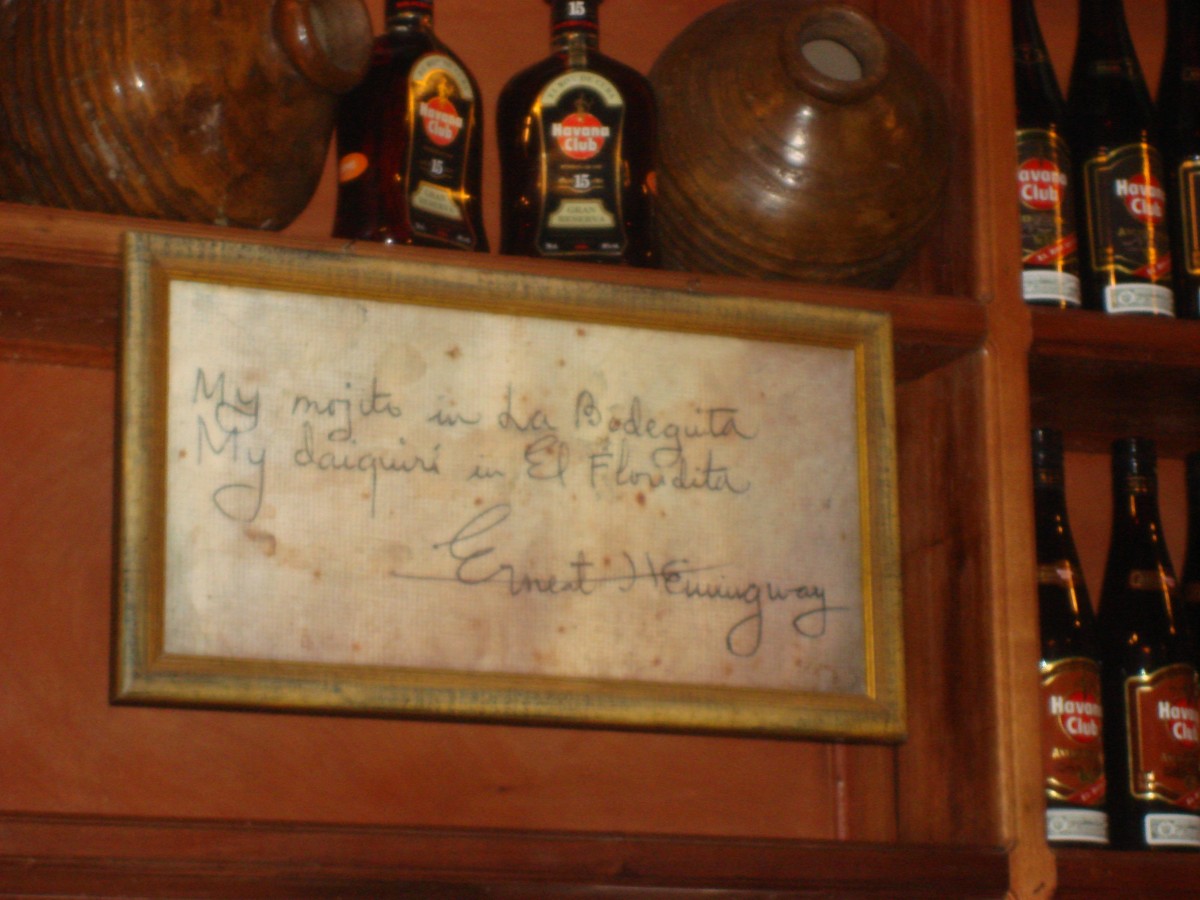 15
Havana
Club
15
GRAN
RESERVA
Havana
Club
15
GRAN
RESERVA
Havana
Club
Havana
Club
My mojito in La Bodeguita
My daiquirí in El Floridita
Ernest Hemingway
Havana
Club
Havana
Club